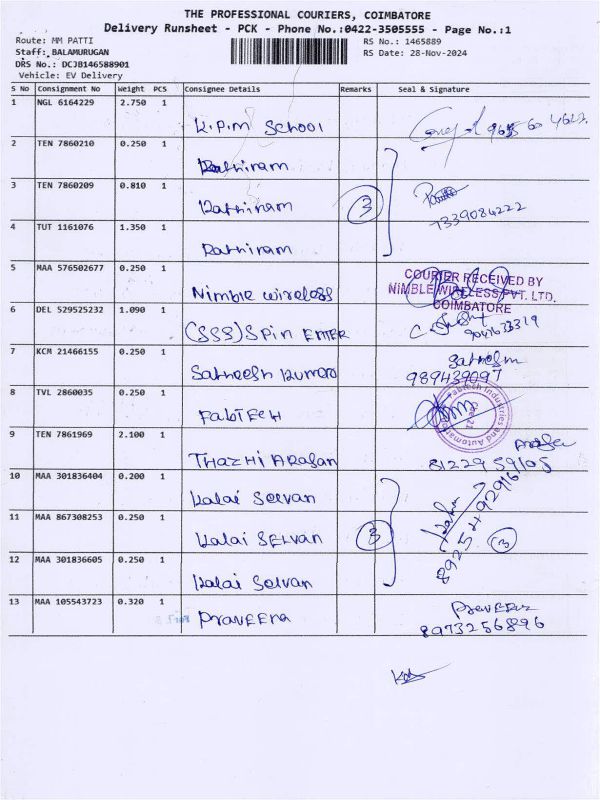 THE PROFESSIONAL COURIERS, COIMBATORE
Delivery Runsheet - PCK - Phone No.:0422-3505555 - Page No.:1
Route: MM PATTI RS No.: 1465889
Staff: BALAMURUGAN RS Date: 28-Nov-2024
DRS No.: DCJB146588901
Vehicle: EV Delivery
S No Consignment No Weight PCS Consignee Details Remarks Seal & Signature
1 NGL 6164229 2.750 1 K.P.M School
2 TEN 7860210 0.250 1 Rathiram
3 TEN 7860209 0.810 1 Rathiram 3 7339084222
4 TUT 1161076 1.350 1 Rathiram
5 MAA 576502677 0.250 1 Nimble wireless COURIER RECEIVED BY
NIMBLE WIRELESS PVT. LTD.
COIMBATORE
6 DEL 529525232 1.090 1 (SSS) Spin ENTER
7 KCM 21466155 0.250 1 Satheesh Kumar Satheesh
989439097
8 TVL 2860035 0.250 1 FabTECH
9 TEN 7861969 2.100 1 THAZHI ARASAN
8122959105
10 MAA 301836404 0.200 1 Kalai Selvan
11 MAA 867308253 0.250 1 Kalai SELVAN 3 8925492916 3
12 MAA 301836605 0.250 1 Kalai Selvan
13 MAA 105543723 0.320 1 PRAVEENA Praveena
8973256896